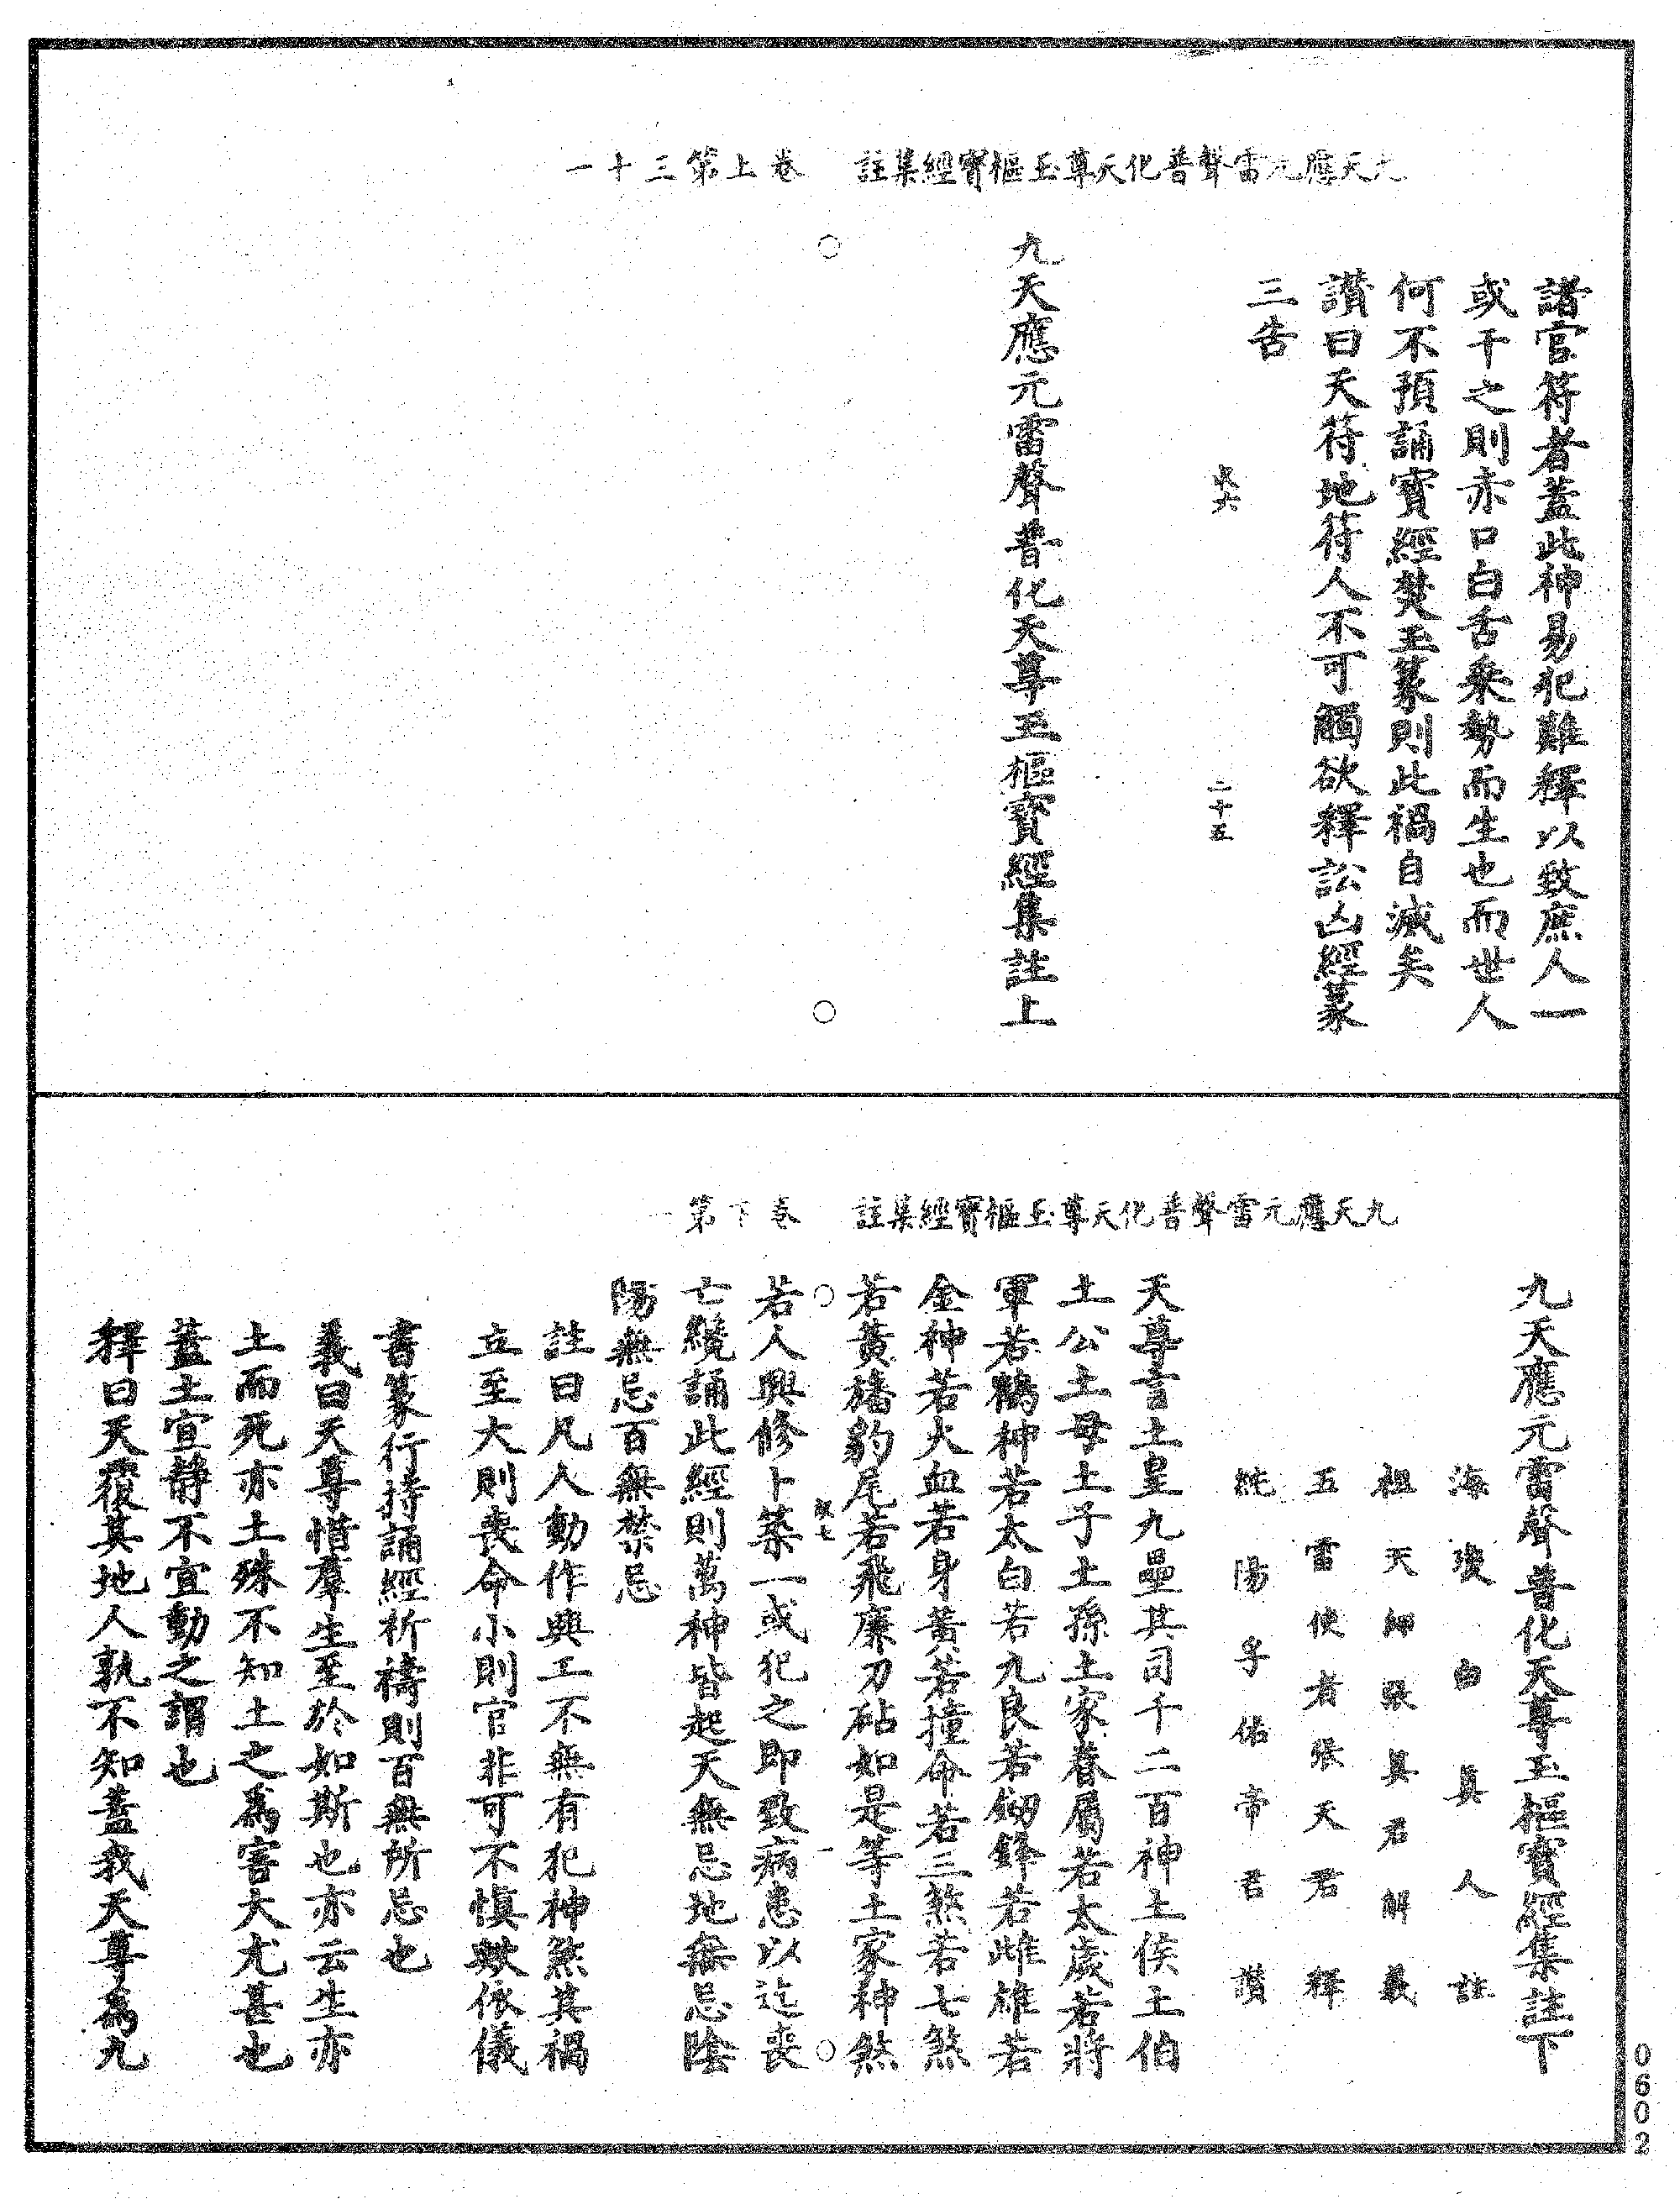 九天應元雷聲普化天尊玉樞寶經集註　卷上第三十一
諸官符者蓋此神易犯難釋以致庶人一
或干之則赤口白舌乘勢而生也而世人
何不預誦寶經焚玉篆則此禍自滅矣
讚曰天符地符人不可觸欲釋訟凶經篆
三告
二十五
九天應元雷聲普化天尊玉樞寶經集註上
九天應元雷聲普化天尊玉樞寶經集註　卷下第一
九天應元雷聲普化天尊玉樞寶經集註下
海瓊白真人註
祖天師張真君解義
五雷使者張天君釋
純陽孚佑帝君讚
天尊言土皇九壘其司千二百神土侯土伯
土公土母土子土孫土家眷屬若太歲若將
軍若鶴神若太白若九良若劒鋒若雌雄若
金神若火血若身黃若撞命若三煞若七煞
若黃旛豹尾若飛廉刀砧如是等土家神煞
若人興修卜築一或犯之即致病患以迄喪
亡纔誦此經則萬神皆起天無忌地無忌陰
陽無忌百無禁忌
註曰凡人動作興工不無有犯神煞其禍
立至大則喪命小則官非可不慎歟依儀
書篆行持誦經祈禱則百無所忌也
義曰天尊惜羣生至於如斯也亦云生亦
土而死亦土殊不知土之爲害大尤甚也
蓋土宜靜不宜動之謂也
釋曰天覆其地人孰不知蓋我天尊爲九
0602